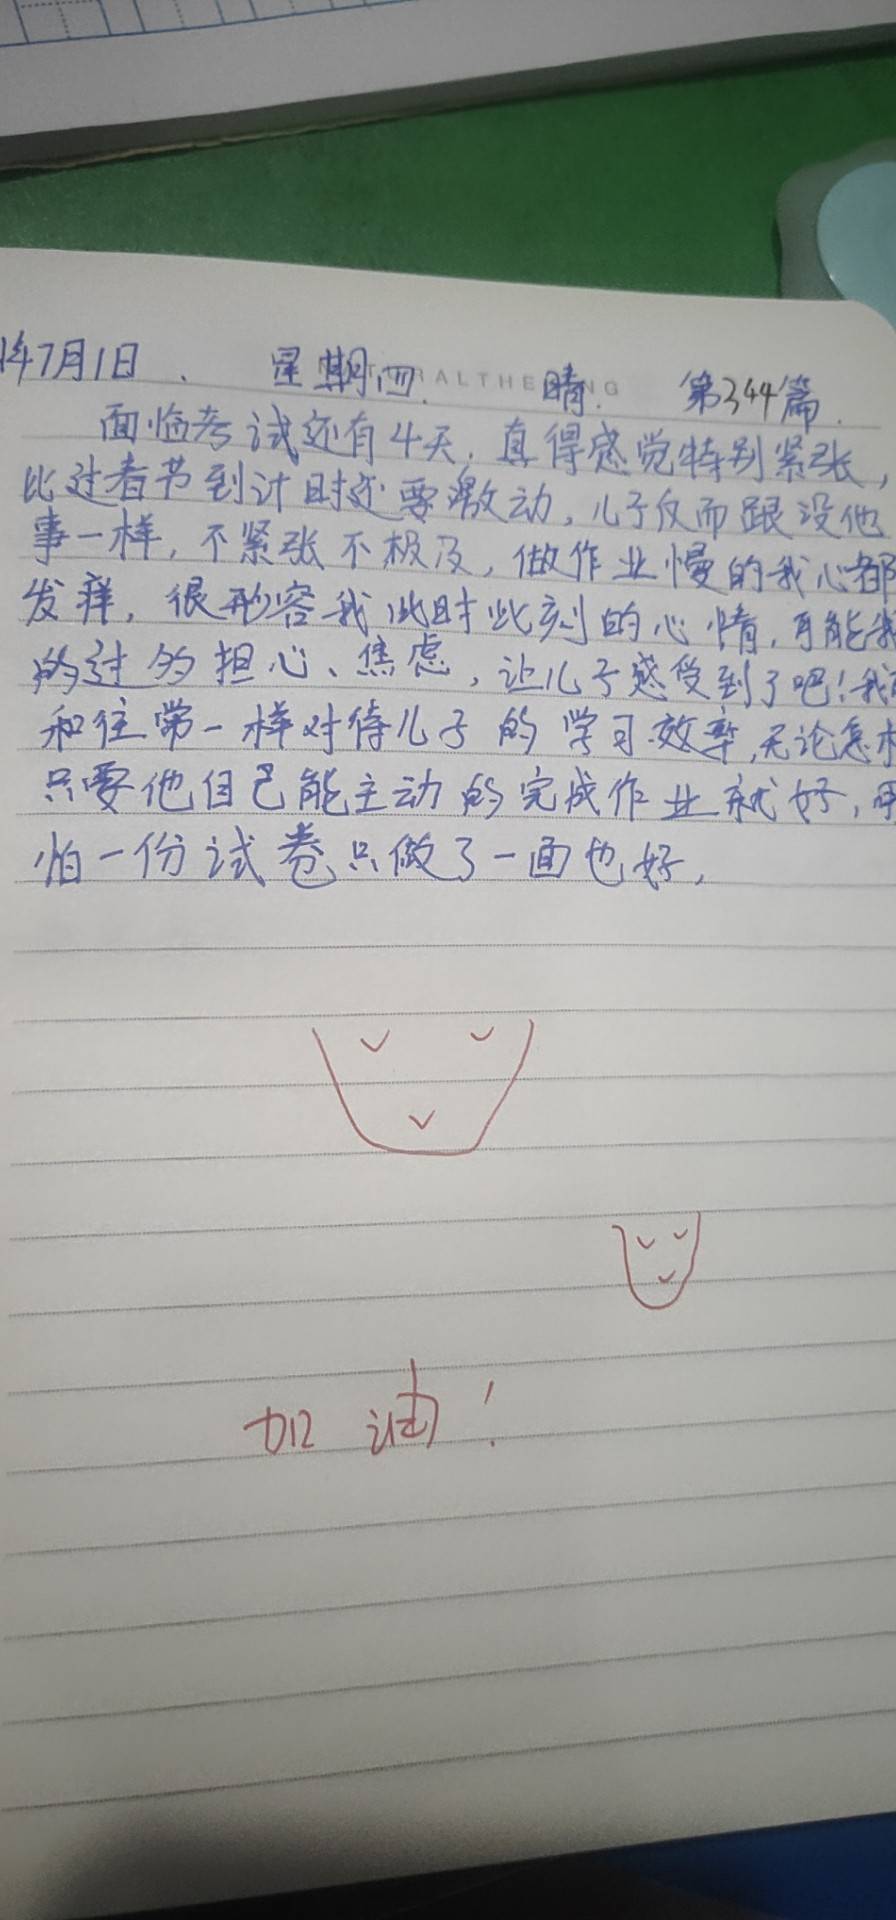 年7月1日 . 星期四. 晴. 第344篇.
面临考试还有4天,真得感觉特别紧张,
比过春节到计时还要激动,儿子反而跟没他
事一样,不紧张不极及,做作业慢的我心都
发痒,很形容我此时此刻的心情,可能我
的过多担心、焦虑,让儿子感受到了吧!我
和往常一样对待儿子的学习效率,无论怎
只要他自己能主动的完成作业就好,
怕一份试卷只做了一面也好,
加油!